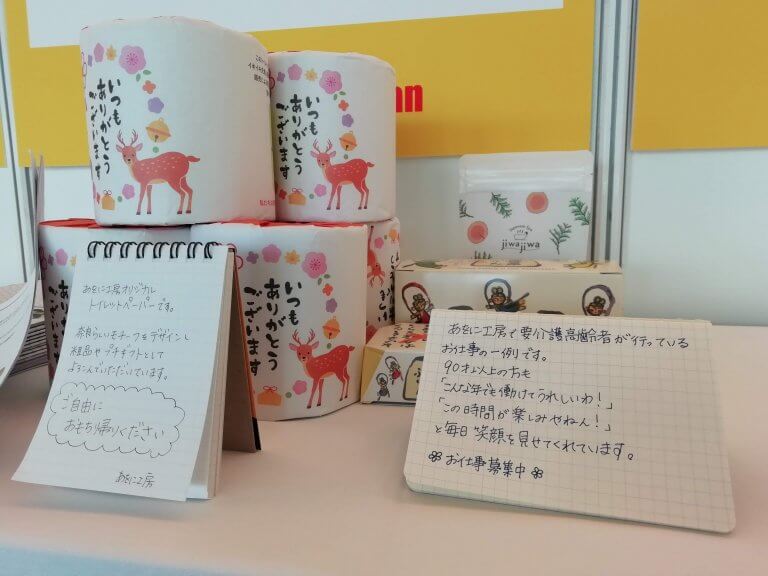 いつも
ありがとう
ございます
いつも
ありがとう
ございます
いつも
ありがとう
ございます
an
jiwajiwa
あをに工房オリジナル
トイレットペーパーです。
奈良らしいモチーフをデザインし
粗品やプチギフトとして
よろこんでいただいています。
ご自由に
おもち帰りください
あをに工房
あをに工房で要介護高齢者が行っている
お仕事の一例です。
90才以上の方も
「こんな年でも働けてうれしいわ!」
「この時間が楽しみやねん!」
と毎日笑顔を見せてくれています。
お仕事募集中